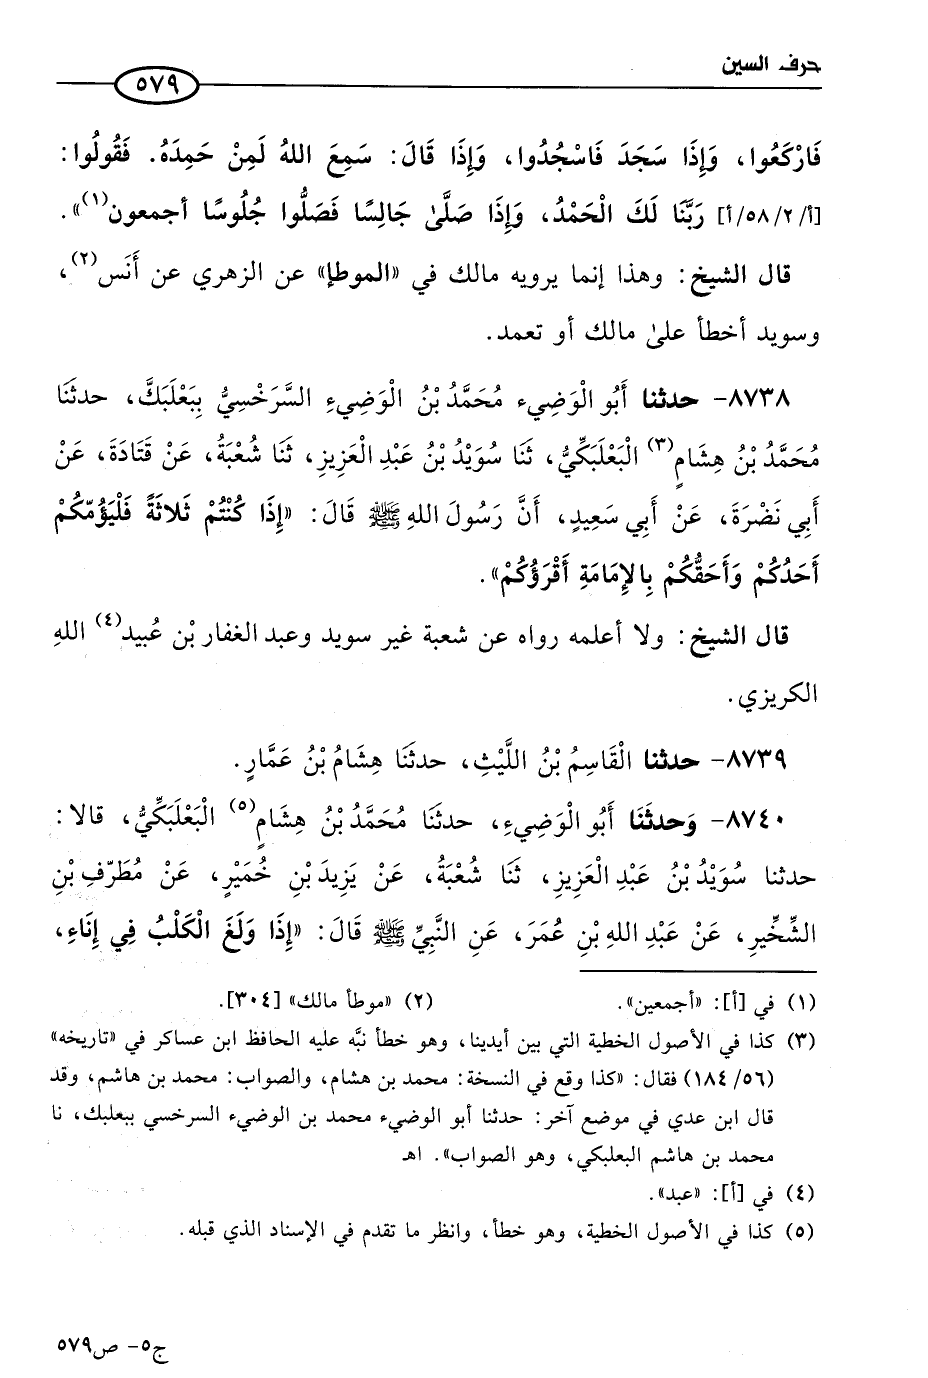 حرف السين
٥٧٩
فَارْكَعُوا، وَإِذَا سَجَدَ فَاسْجُدُوا، وَإِذَا قَالَ: سَمِعَ اللهُ لَمِنْ حَمِدَهُ. فَقُولُوا:
[أ/٢/٥٨/أ] رَبَّنَا لَكَ الْحَمْدُ، وَإِذَا صَلَّىٰ جَالِسًا فَصَلُّوا جُلُوسًا أجمعون(١)».
قال الشيخ: وهذا إنما يرويه مالك في «الموطإ» عن الزهري عن أَنَس(٢)،
وسويد أخطأ علىٰ مالك أو تعمد.
٨٧٣٨- حدثنا أَبُو الْوَضِيء مُحَمَّدُ بْنُ الْوَضِيءِ السَّرَخْسِيُّ بِبَعْلَبَكَّ، حدثَنَا
مُحَمَّدُ بْنُ هِشَامٍ(٣) الْبَعْلَبَكِّيُّ، ثَنَا سُوَيْدُ بْنُ عَبْدِ الْعَزِيزِ، ثَنَا شُعْبَةُ، عَنْ قَتَادَةَ، عَنْ
أَبِي نَضْرَةَ، عَنْ أَبِي سَعِيدٍ، أَنَّ رَسُولَ اللهِ ﷺ قَالَ: «إِذَا كُنْتُمْ ثَلاثَةً فَلْيَؤُمّكُمْ
أَحَدُكُمْ وَأَحَقُّكُمْ بِالإِمَامَةِ أَقْرَؤُكُمْ».
قال الشيخ: ولا أعلمه رواه عن شعبة غير سويد وعبد الغفار بْن عُبيد(٤) اللهِ
الكريزي.
٨٧٣٩- حدثنا الْقَاسِمُ بْنُ اللَّيْثِ، حدثَنَا هِشَامُ بْنُ عَمَّارٍ.
٨٧٤٠- وَحدثَنَا أَبُو الْوَضِيءِ، حدثَنَا مُحَمَّدُ بْنُ هِشَامٍ(٥) الْبَعْلَبَكِّيُّ، قالا:
حدثنا سُوَيْدُ بْنُ عَبْدِ الْعَزِيزِ، ثَنَا شُعْبَةُ، عَنْ يَزِيدَ بْنِ خُمَيْرٍ، عَنْ مُطَرِّفِ بْنِ
الشِّخِّيرِ، عَنْ عَبْدِ اللهِ بْنِ عُمَرَ، عَنِ النَّبِيِّ ﷺ قَالَ: «إِذَا وَلَغَ الْكَلْبُ فِي إِنَاءٍ،
(١) في [أ]: «أجمعين». (٢) «موطأ مالك» [٣٠٤].
(٣) كذا في الأصول الخطية التي بين أيدينا، وهو خطأ نبَّه عليه الحافظ ابن عساكر في «تاريخه»
(٥٦/ ١٨٤) فقال: «كذا وقع في النسخة: محمد بن هشام، والصواب: محمد بن هاشم، وقد
قال ابن عدي في موضع آخر: حدثنا أبو الوضيء محمد بن الوضيء السرخسي ببعلبك، نا
محمد بن هاشم البعلبكي، وهو الصواب». اهـ
(٤) في [أ]: «عبد».
(٥) كذا في الأصول الخطية، وهو خطأ، وانظر ما تقدم في الإسناد الذي قبله.
ج٥- ص٥٧٩